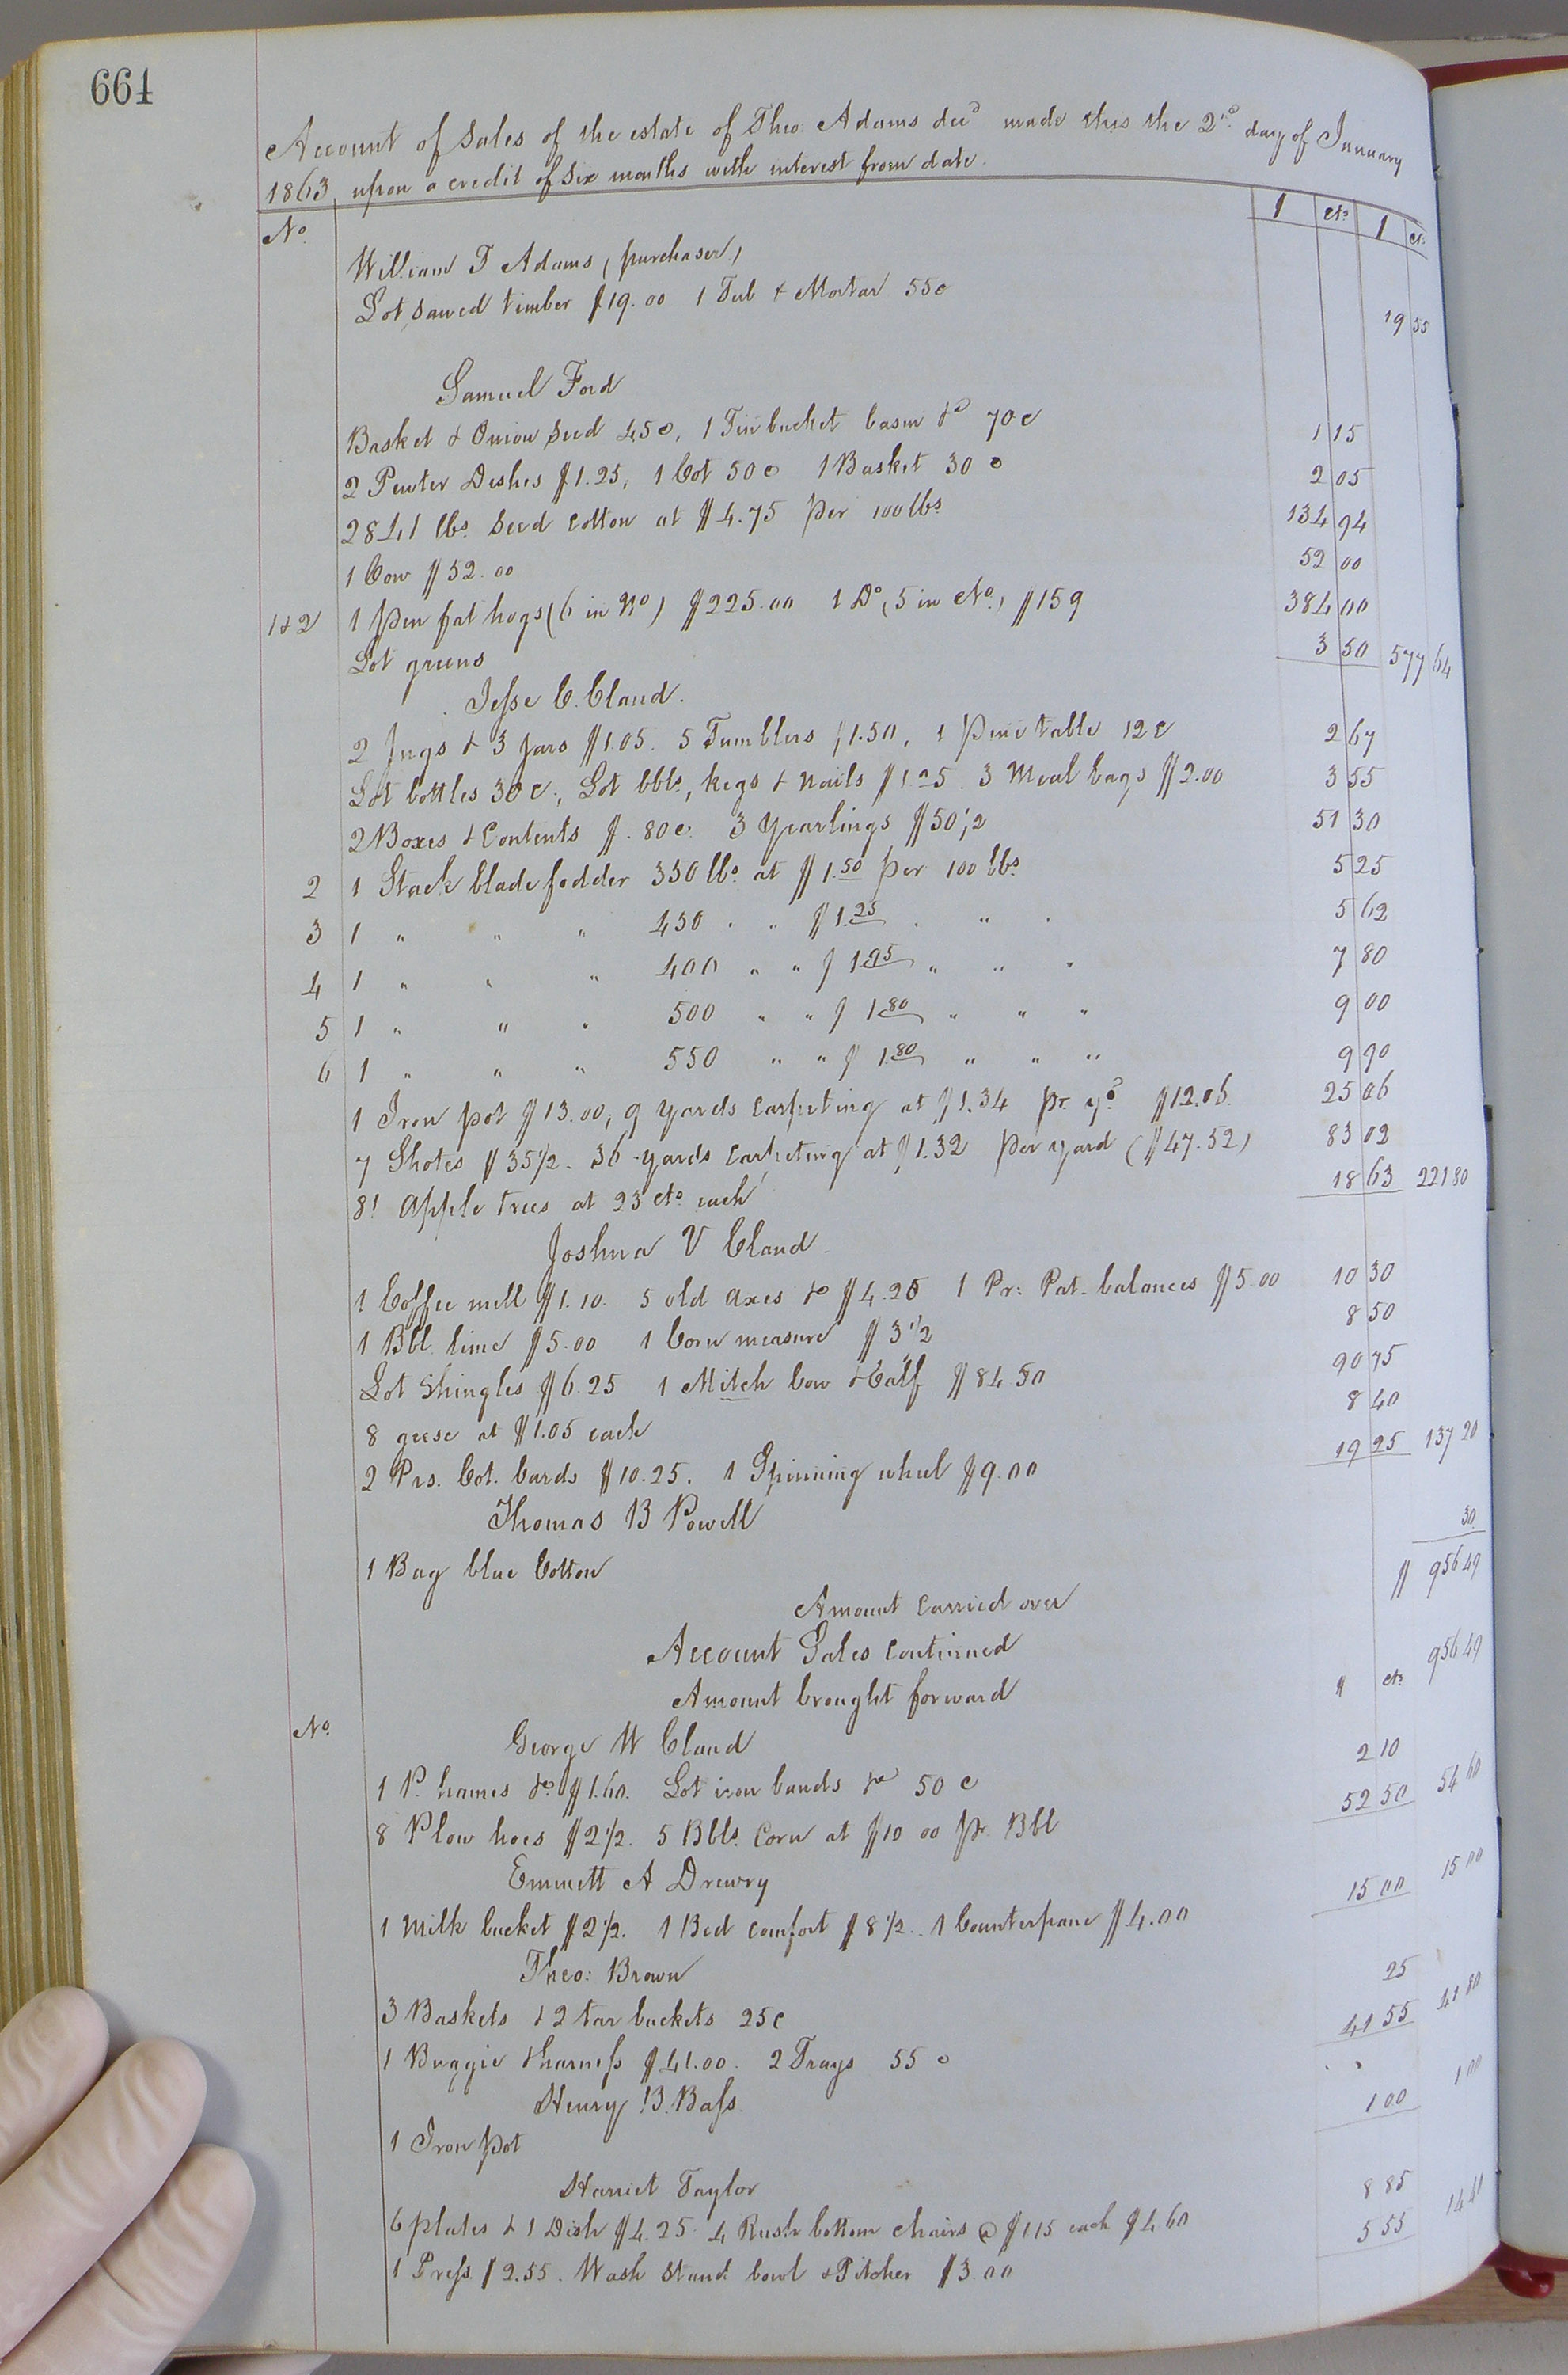 664
Account of Sales of the estate of Theo: Adams decd made this the 2nd day of January
1863, upon a credit of six months with interest from date.
No. $ cts $ cts
William T Adams (purchaser)
Lot sawed timber $19.00 1 Tub & Mortar 55c 19 55
Samuel Ford
Basket & Onion Seed 45c, 1 Tin bucket basin &c 70c 1 15
2 Pewter Dishes $1.25, 1 Cot 50c 1 Basket 30c 2 05
2841 lbs. Seed Cotton at $4.75 per 100 lbs 134 94
1 Cow $52.00 52 00
1&2 1 Pen fat hogs (6 in No) $225.00 1 Do (5 in No.) $159 384 00
Lot greens 3 50 577 64
Jesse C. Claud.
2 Jugs & 3 Jars $1.05. 5 Tumblers $1.50, 1 Pine table 12c 2 67
Lot bottles 30c, Lot bbls, kegs & nails $1.25. 3 Meal bags $2.00 3 55
2 Boxes & Contents $.80c. 3 Yearlings $50 1/2 51 30
2 1 Stack blade fodder 350 lbs. at $1.50 per 100 lbs 5 25
3 1 " " " 450 " " $1.25 " " " 5 62
4 1 " " " 400 " " $1.95 " " " 7 80
5 1 " " " 500 " " $1.80 " " " 9 00
6 1 " " " 550 " " $1.80 " " " 9 90
1 Iron pot $13.00, 9 yards carpeting at $1.34 pr. yd $12.06 25 06
7 Shotes $35 1/2. 36 yards carpeting at $1.32 per yard ($47.52) 83 02
81 Apple trees at 23 cts. each 18 63 221 80
Joshua V Claud
1 Coffee mill $1.10. 5 old axes &c $4.20 1 Pr: Pat. balances $5.00 10 30
1 Bbl. lime $5.00 1 Corn measure $3 1/2 8 50
Lot Shingles $6.25 1 Milch Cow & Calf $84.50 90 75
8 geese at $1.05 each 8 40
2 Prs. Cot. Cards $10.25. 1 Spinning wheel $9.00 19 25 137 20
Thomas B Powell
1 Bag blue Cotton 30
Amount carried over $ 956 49
Account Sales continued
Amount brought forward $ cts 956 49
No.
George W Claud
1 P. hames &c. $1.60. Lot iron bands &c 50c 2 10
8 Plow hoes $2 1/2. 5 Bbls. Corn at $10 00 pr. Bbl 52 50 54 60
Emmett A Drewry
1 Milk bucket $2 1/2. 1 Bed comfort $8 1/2. 1 Counterpane $4.00 15 00 15 00
Theo: Brown
3 Baskets & 2 tar buckets 25c 25
1 Buggie & harness $41.00. 2 Trays 55c 41 55 41 80
Henry B. Bass
1 Iron Pot 1 00 1 00
Harriet Taylor
6 plates & 1 Dish $4.25. 4 Rush bottom chairs @ $1.15 each $4 60 8 85
1 Press $2.55. Wash Stand bowl & Pitcher $3.00 5 55